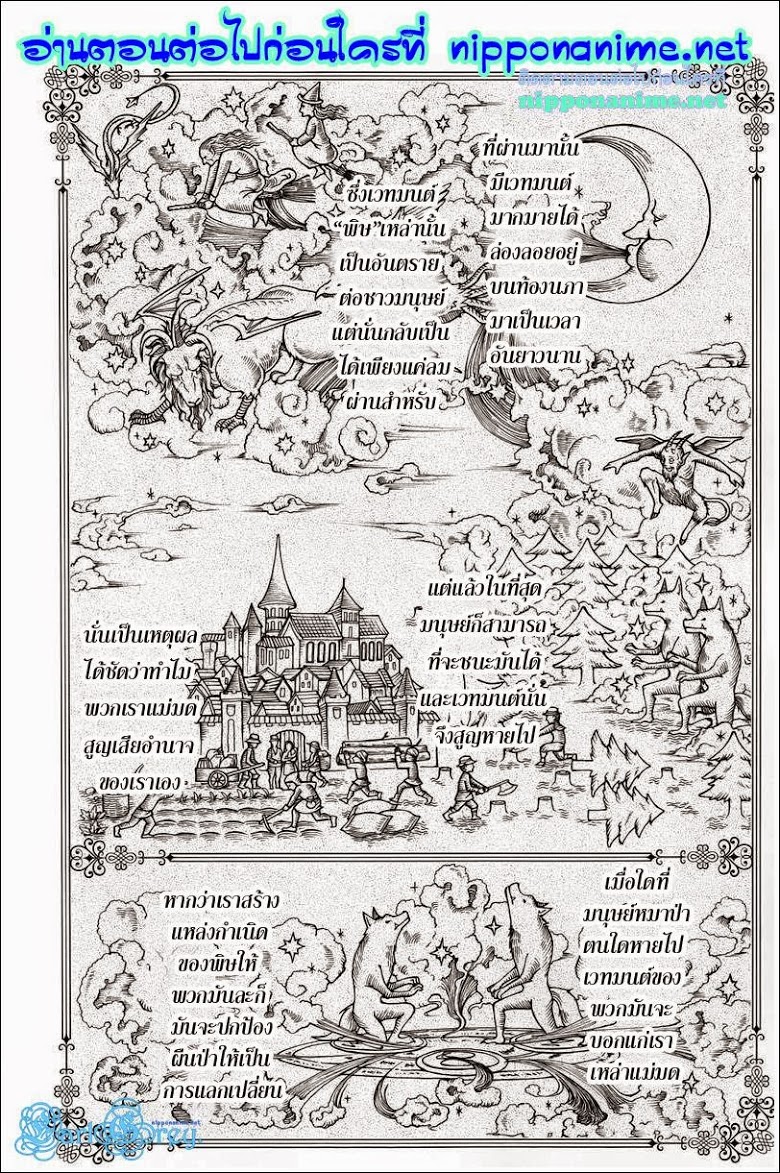 อ่านตอนต่อไปก่อนใครที่ nipponanime.net
nipponanime.net
ที่ผ่านมานั้น
มีเวทมนต์
มากมายได้
ล่องลอยอยู่
บนท้องนภา
มาเป็นเวลา
อันยาวนาน
ซึ่งเวทมนต์
“พิษ”เหล่านั้น
เป็นอันตราย
ต่อชาวมนุษย์
แต่นั่นกลับเป็น
ได้เพียงแค่ลม
ผ่านสำหรับ
แต่แล้วในที่สุด
มนุษย์ก็สามารถ
ที่จะชนะมันได้
และเวทมนต์นั้น
จึงสูญหายไป
นั่นเป็นเหตุผล
ได้ชัดว่าทำไม
พวกเราแม่มด
สูญเสียอำนาจ
ของเราเอง
เมื่อใดที่
มนุษย์หมาป่า
ตนใดหายไป
เวทมนต์ของ
พวกมันจะ
บอกแก่เรา
เหล่าแม่มด
หากว่าเราสร้าง
แหล่งกำเนิด
ของพิษให้
พวกมันละก็
มันจะปกป้อง
ผืนป่าให้เป็น
การแลกเปลี่ยน
nipponanime.net